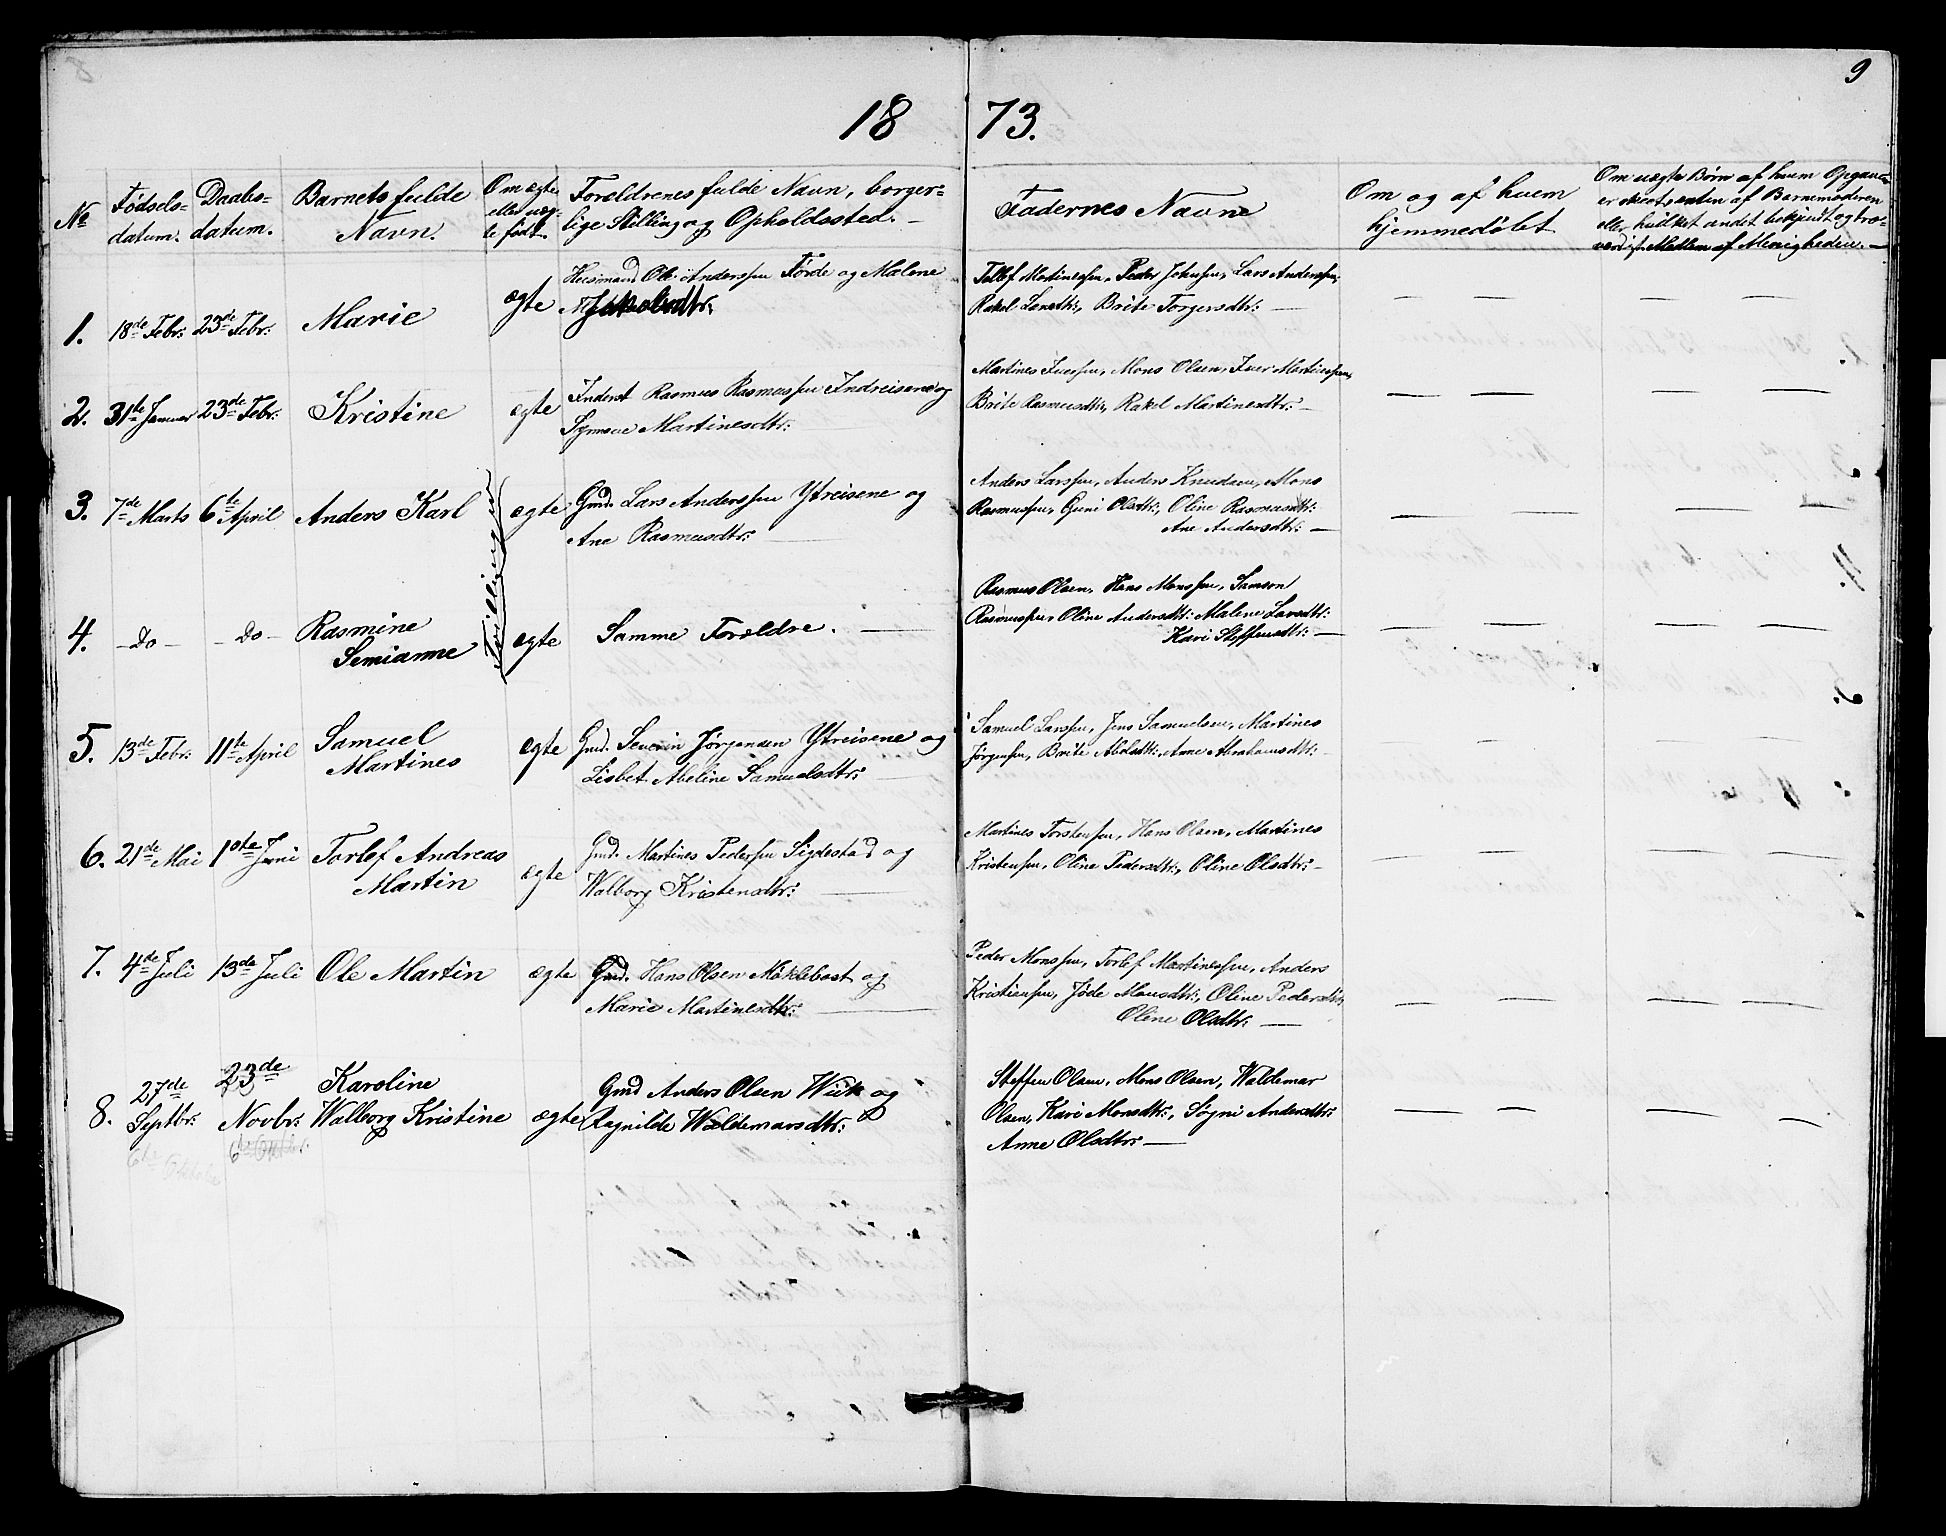 9
18 73.
No
Fødsels-
datum.
Daabs-
datum.
Barnets fulde
Navn.
Om ægte
eller uæg-
te født.
Forældrenes fulde Navn, borger-
lige Stilling og Opholdssted. —
Faddernes Navne
Om og af hvem
hjemmedøbt
Om uægte Børn af hvem Opgaven
er skeet, enten af Barnemoderen
eller hvilket andet bekjendt og tro-
værdigt Medlem af Menigheden. —
1. 18de Febr: 23de Febr: Marie ægte
Huusmand Ole Anderssen Førde og Malene
Jakobsdtr.
Tollef Martinessen, Peder Johnsen, Lars Anderssen,
Rakel Larsdtr:, Brite Torgersdtr: —
2. 31te Januar 23de Febr: Kristine ægte
Inderst Rasmus Rasmussen Indreisene og
Synneve Martinesdtr:
Martines Iverssen, Mons Olsen, Iver Martinessen,
Brite Rasmusdtr:, Rakel Martinesdtr: —
3. 7de Marts 6te April Anders Karl ægte
Gmd. Lars Anderssen Ytreisene og
Ane Rasmusdtr:
Anders Larssen, Anders Knudsen, Mons
Rasmussen, Guni Olsdtr:, Oline Rasmusdtr:
Ane Andersdtr: —
Tvillinger
4. — Do — — Do — Rasmine
Semianne ægte
Samme Forældre. —
Rasmus Olsen, Hans Monssen, Samson
Rasmussen, Oline Andersdtr: Malene Larsdtr:
Kari Steffensdtr: —
5. 13de Febr: 11te April Samuel
Martines ægte
Gmd. Severin Jørgensen Ytreisene og
Lisbet Abeline Samuelsdtr:
Samuel Larssen, Jens Samuelsen, Martines
Jørgensen, Brite Abelsdtr:, Anne Abrahamsdtr:
6. 21de Mai 1ste Juni Torlef Andreas
Martin ægte
Gmd. Martines Pederssen Sigdestad og
Walborg Kristensdtr:
Martines Torstenssen, Hans Olsen, Martines
Kristenssen, Oline Pedersdtr:, Oline Olsdtr: —
7. 4de Juli 13de Juli Ole Martin ægte
Gmd. Hans Olsen Møklebost og
Marie Martinesdtr:
Peder Monssen, Torlef Martinessen, Anders
Kristianssen, Jøde Monsdtr:, Oline Pedersdtr,
Oline Olsdtr: —
8. 27de
Septbr: 23de
Novbr: Karoline
Walborg Kristine ægte
Gmd Anders Olsen Wiik og
Ragnilde Waldemarsdtr:
Steffen Olsen, Mons Olsen, Waldemar
Olsen, Kari Monsdtr:, Søgni Andersdtr:
Anne Olsdtr: —
6te Oktober